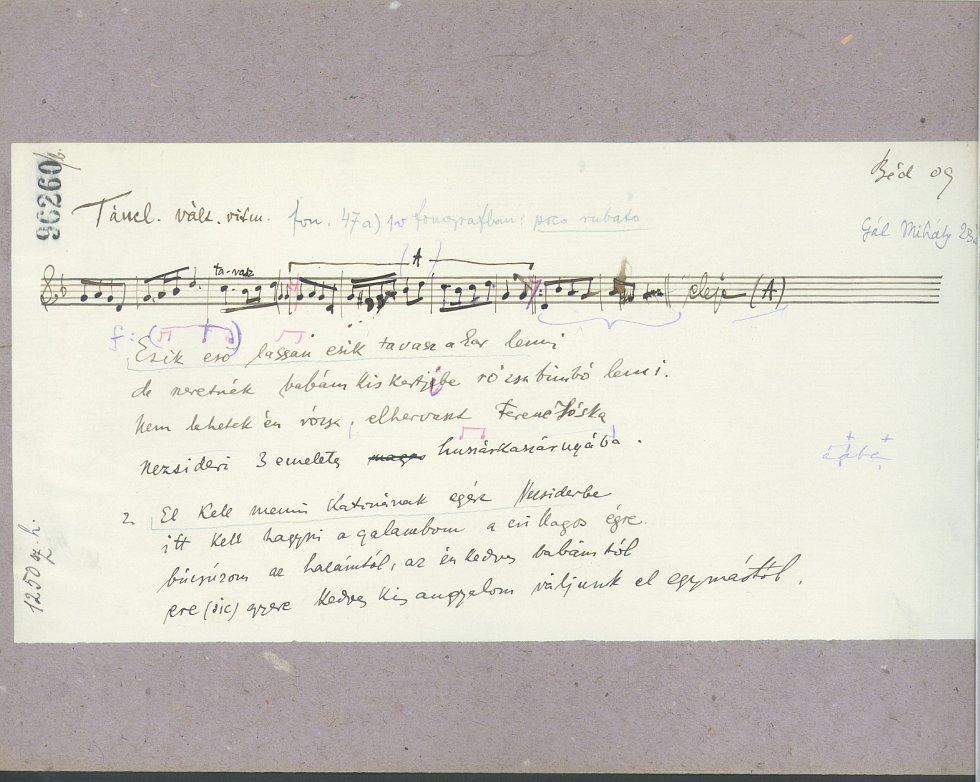 96260/b.
Béd 09
Táncl. vált. ritm. fon. 47a) fonografban: poco rubato
Gál Mihály 23
A
ta-vasz
eleje (A)
f:
Esik eső lassan esik tavasz akar lenni
de szeretnék babám kis kertjébe rózsabimbó lenni.
Nem lehetek én rózsa, elhervaszt Ferenc Jóska
Nezsideri 3 emeletes huszárkaszárnyába.
ábá
2. El kell menni katonának egész Nezsiderbe
itt kell hagyni a galambom a csillagos égre.
búcsúzom az hazámtól, az én kedves babámtól
ere (sic) gyere kedves kis angyalom váljunk el egymástól.
1250 sz. h.